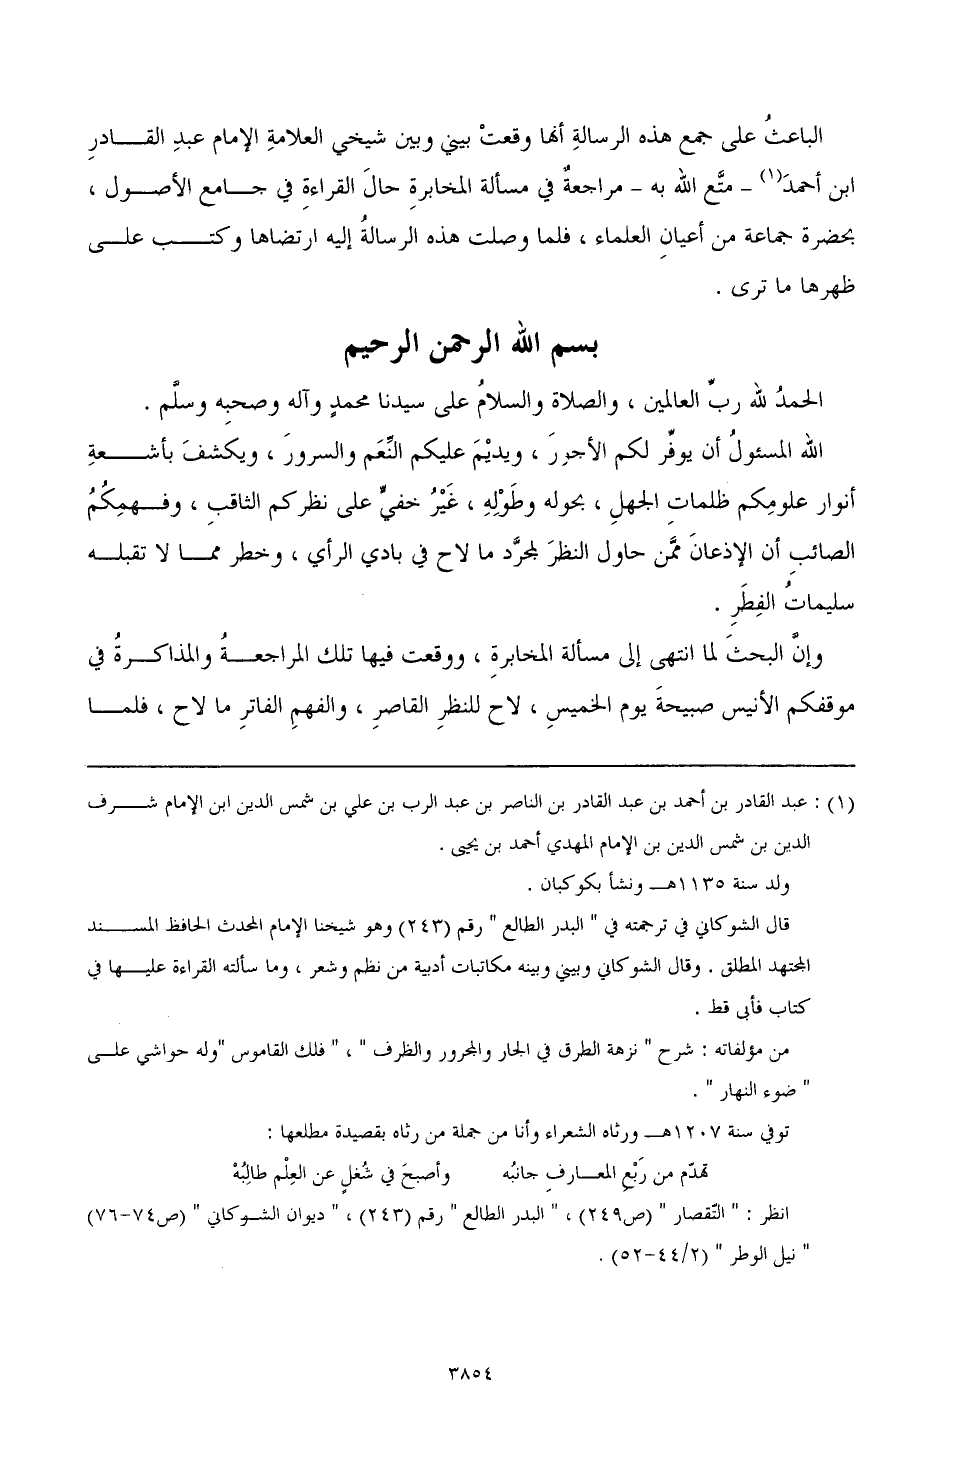 الباعثُ على جمع هذه الرسالةِ أنها وقعتْ بيني وبين شيخي العلامةِ الإمام عبدِ القـــادرِ
ابن أحمدَ(١) – متَّع الله به – مراجعةٌ في مسألة المخابرةِ حالَ القراءةِ في جـــامع الأصـــول ،
بحضرة جماعة من أعيانِ العلماء ، فلما وصلت هذه الرسالةُ إليه ارتضاها وكتـــب علـــى
ظهرِها ما ترى .
بسم الله الرحمن الرحيم
الحمدُ لله ربِّ العالمين ، والصلاة والسلامُ على سيدنا محمدٍ وآله وصحبِه وسلَّم .
الله المسئولُ أن يوفِّر لكم الأجورَ ، ويديْمَ عليكم النِّعَم والسرورَ ، ويكشفَ بأشـــعةِ
أنوار علومِكم ظلماتِ الجهلِ ، بحوله وطَوْلِهِ ، غَيْرُ خفيٍّ على نظركم الثاقبِ ، وفـــهمِكُمُ
الصائبِ أن الإذعانَ ممَّن حاول النظرَ لمجرَّد ما لاح في بادي الرأي ، وخطر ممـــا لا تقبلـــه
سليماتُ الفِطَرِ .
وإنَّ البحثَ لما انتهى إلى مسألة المخابرةِ ، ووقعت فيها تلك المراجعـــةُ والمذاكـــرةُ في
موقفكم الأنيس صبيحةَ يوم الخميسِ ، لاح للنظرِ القاصرِ ، والفهمِ الفاترِ ما لاح ، فلمـــا
(١) : عبد القادر بن أحمد بن عبد القادر بن الناصر بن عبد الرب بن علي بن شمس الدين ابن الإمام شـــرف
الدين بن شمس الدين بن الإمام المهدي أحمد بن يحيى .
ولد سنة ١١٣٥هـــ ونشأ بكوكبان .
قال الشوكاني في ترجمته في " البدر الطالع " رقم (٢٤٣) وهو شيخنا الإمام المحدث الحافظ المســـند
المجتهد المطلق . وقال الشوكاني وبيني وبينه مكاتبات أدبية من نظم وشعر ، وما سألته القراءة عليـــها في
كتاب فأبى قط .
من مؤلفاته : شرح " نزهة الطرق في الجار والمجرور والظرف " ، " فلك القاموس "وله حواشي علـــى
" ضوء النهار " .
توفي سنة ١٢٠٧هـــ ورثاه الشعراء وأنا من جملة من رثاه بقصيدة مطلعها :
تهدّم من رَبْعِ المعـــارفِ جانبُه وأصبحَ في شُغلٍ عن العِلْم طالِبُهْ
انظر : " التّقصار " (ص٢٤٩) ، " البدر الطالع " رقم (٢٤٣) ، " ديوان الشـــوكاني " (ص٧٤–٧٦)
" نيل الوطر " (٤٤/٢–٥٢) .
٣٨٥٤